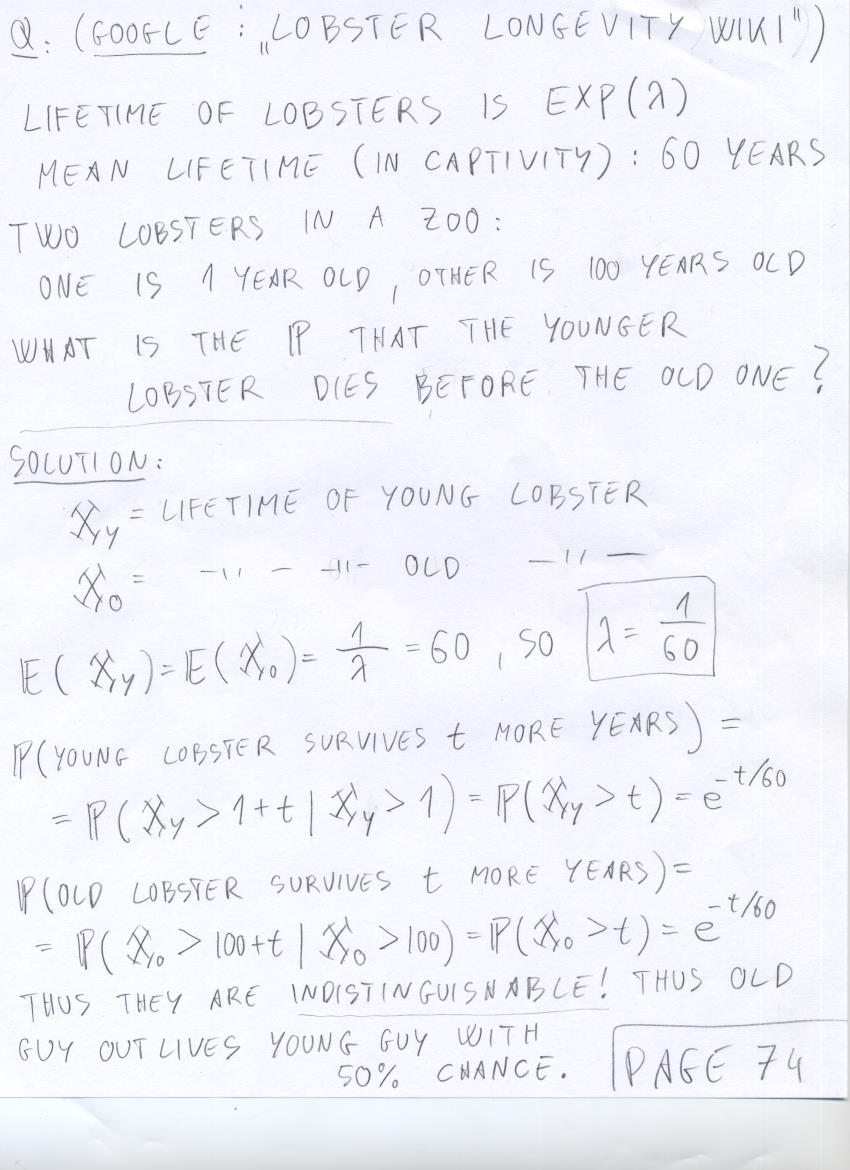 Q: (GOOGLE : „LOBSTER LONGEVITY WIKI")
LIFETIME OF LOBSTERS IS EXP(λ)
MEAN LIFETIME (IN CAPTIVITY) : 60 YEARS
TWO LOBSTERS IN A ZOO:
ONE IS 1 YEAR OLD, OTHER IS 100 YEARS OLD
WHAT IS THE ℙ THAT THE YOUNGER
LOBSTER DIES BEFORE THE OLD ONE?
SOLUTION:
X_y = LIFETIME OF YOUNG LOBSTER
X_o = -"- -"- OLD -"-
𝔼(X_y) = 𝔼(X_o) = 1/λ = 60, SO λ = 1/60
ℙ(YOUNG LOBSTER SURVIVES t MORE YEARS) =
= ℙ(X_y > 1+t | X_y > 1) = ℙ(X_y > t) = e^{-t/60}
ℙ(OLD LOBSTER SURVIVES t MORE YEARS) =
= ℙ(X_o > 100+t | X_o > 100) = ℙ(X_o > t) = e^{-t/60}
THUS THEY ARE INDISTINGUISHABLE! THUS OLD
GUY OUTLIVES YOUNG GUY WITH
50% CHANCE.
PAGE 74